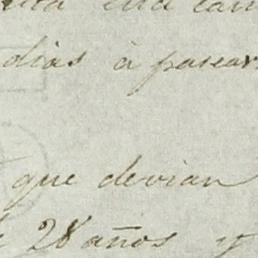 ella
dias à pasear
que devian
28 años y